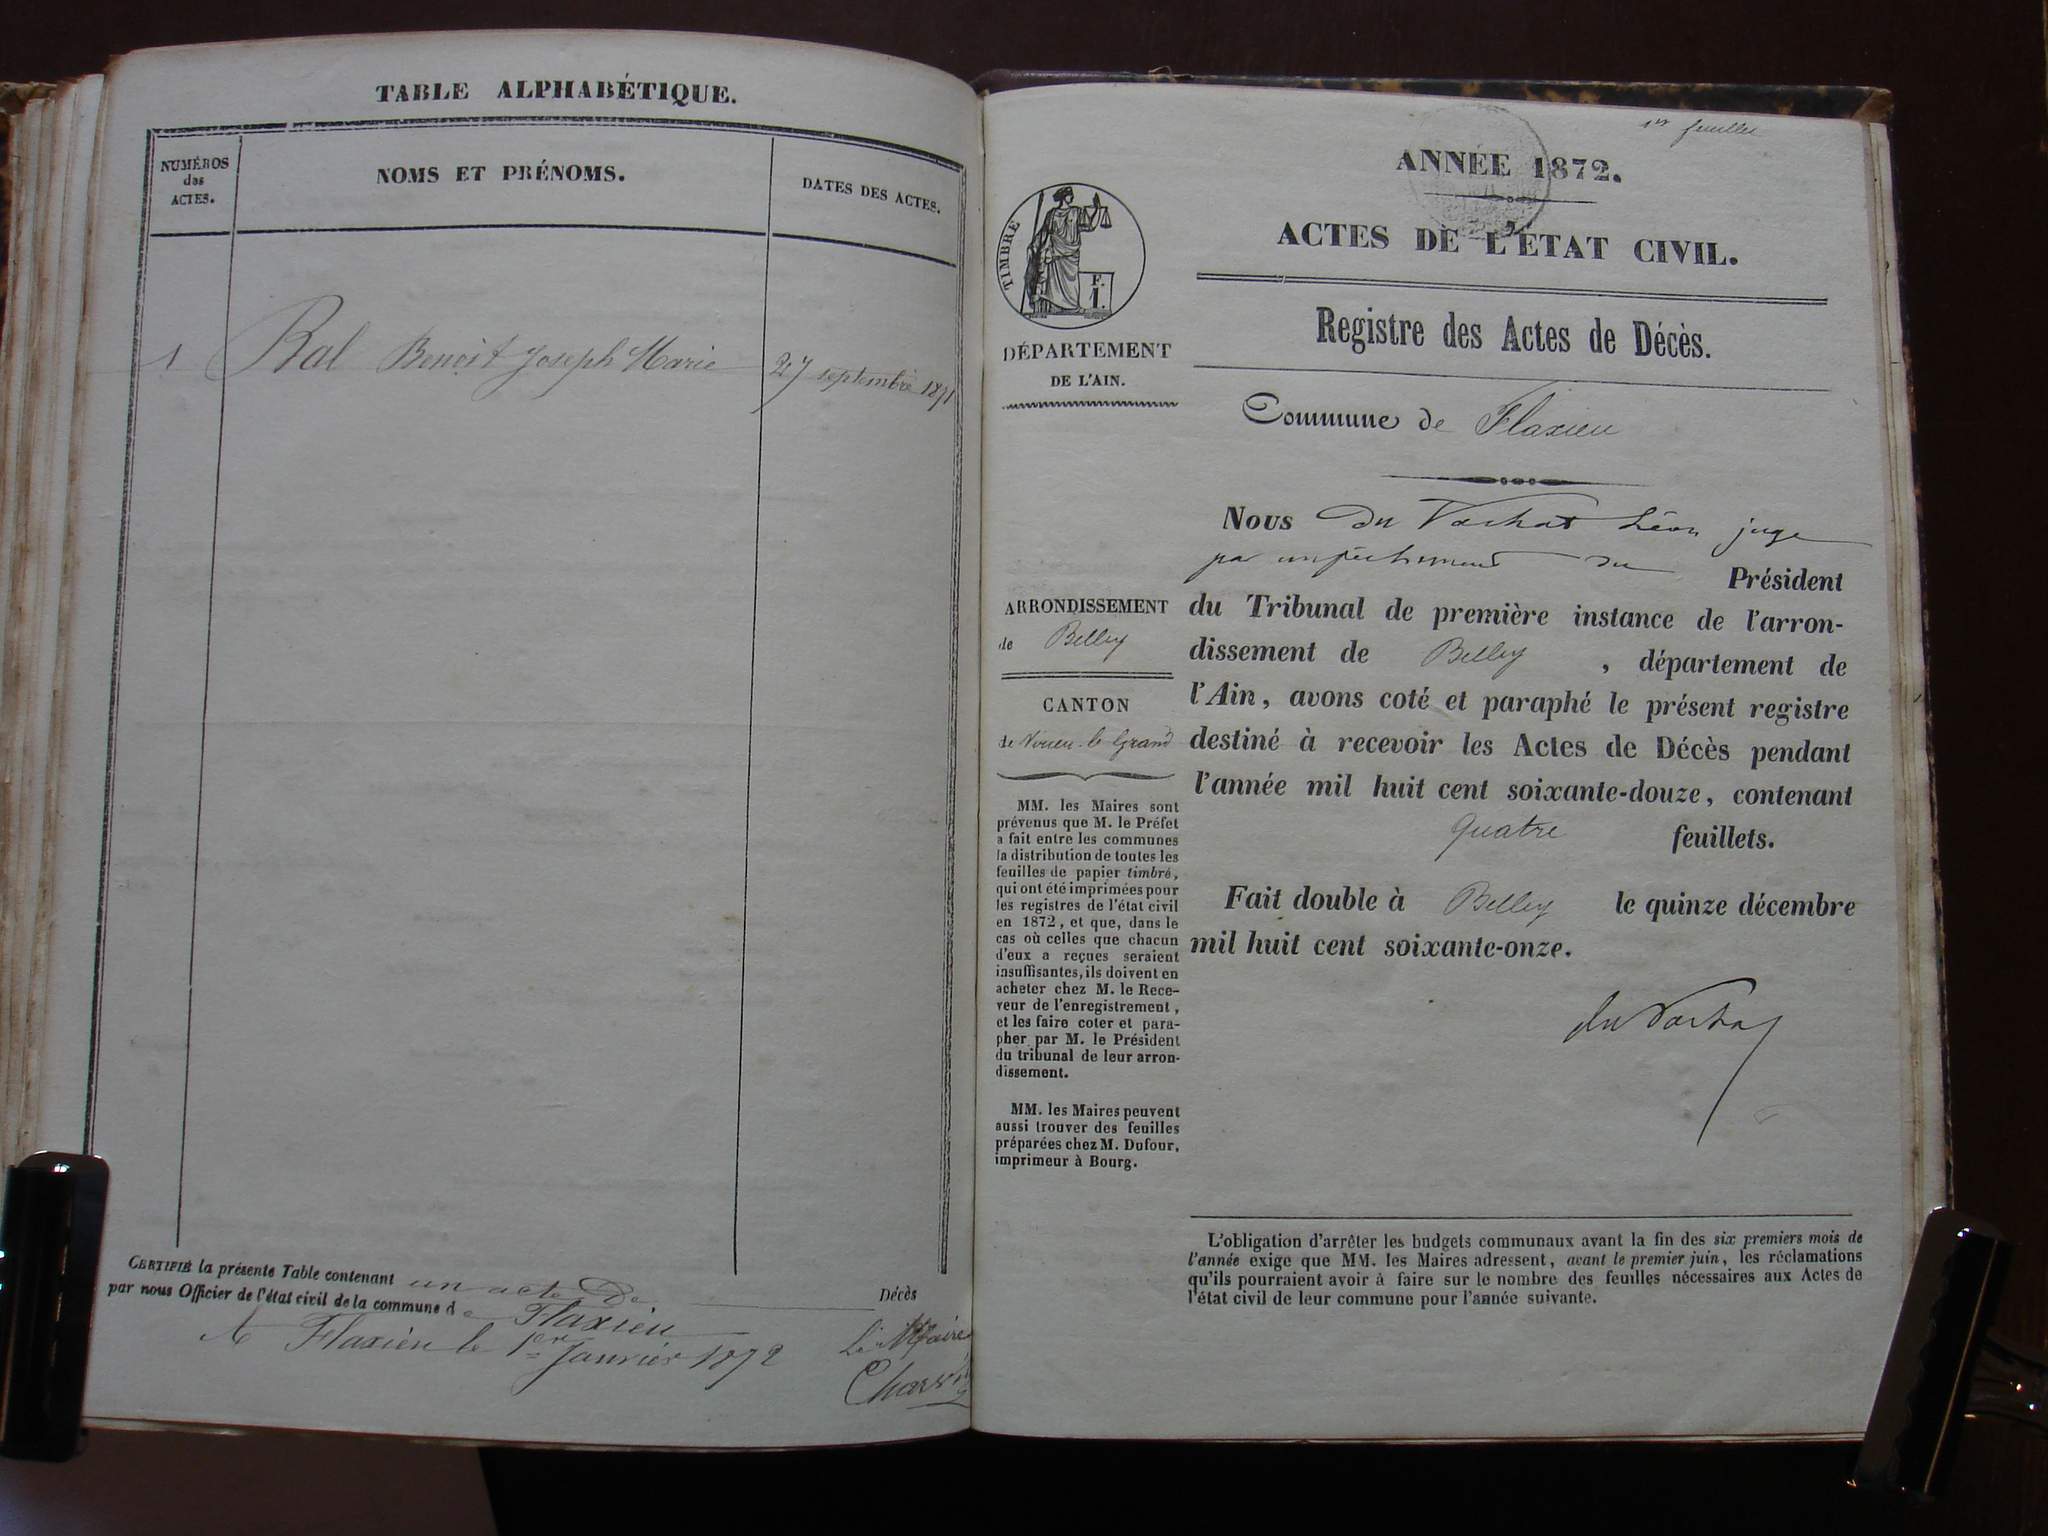 TABLE ALPHABÉTIQUE.
NUMÉROS
des
ACTES.
NOMS ET PRÉNOMS.
DATES DES ACTES.
1 Bal Benoit Joseph Marie 27 septembre 1871
CERTIFIÉ la présente Table contenant un acte de Décès
par nous Officier de l'état civil de la commune de Flaxieu
A Flaxieu le 1er Janvier 1872
Le Maire
1er feuillet
ANNÉE 1872.
ACTES DE L'ÉTAT CIVIL.
Registre des Actes de Décès.
Commune de Flaxieu
TIMBRE
F.
1.
DÉPARTEMENT
DE L'AIN.
ARRONDISSEMENT
de Belley
CANTON
de Virieu le Grand
MM. les Maires sont
prévenus que M. le Préfet
a fait entre les communes
la distribution de toutes les
feuilles de papier timbré,
qui ont été imprimées pour
les registres de l'état civil
en 1872, et que, dans le
cas où celles que chacun
d'eux a reçues seraient
insuffisantes, ils doivent en
acheter chez M. le Rece-
veur de l'enregistrement,
et les faire coter et para-
pher par M. le Président
du tribunal de leur arron-
dissement.
MM. les Maires peuvent
aussi trouver des feuilles
préparées chez M. Dufour,
imprimeur à Bourg.
Nous du Vachat Léon juge
par empêchement du Président
du Tribunal de première instance de l'arron-
dissement de Belley, département de
l'Ain, avons coté et paraphé le présent registre
destiné à recevoir les Actes de Décès pendant
l'année mil huit cent soixante-douze, contenant
quatre feuillets.
Fait double à Belley le quinze décembre
mil huit cent soixante-onze.
du Vachat
L'obligation d'arrêter les budgets communaux avant la fin des six premiers mois de
l'année exige que MM. les Maires adressent, avant le premier juin, les réclamations
qu'ils pourraient avoir à faire sur le nombre des feuilles nécessaires aux Actes de
l'état civil de leur commune pour l'année suivante.